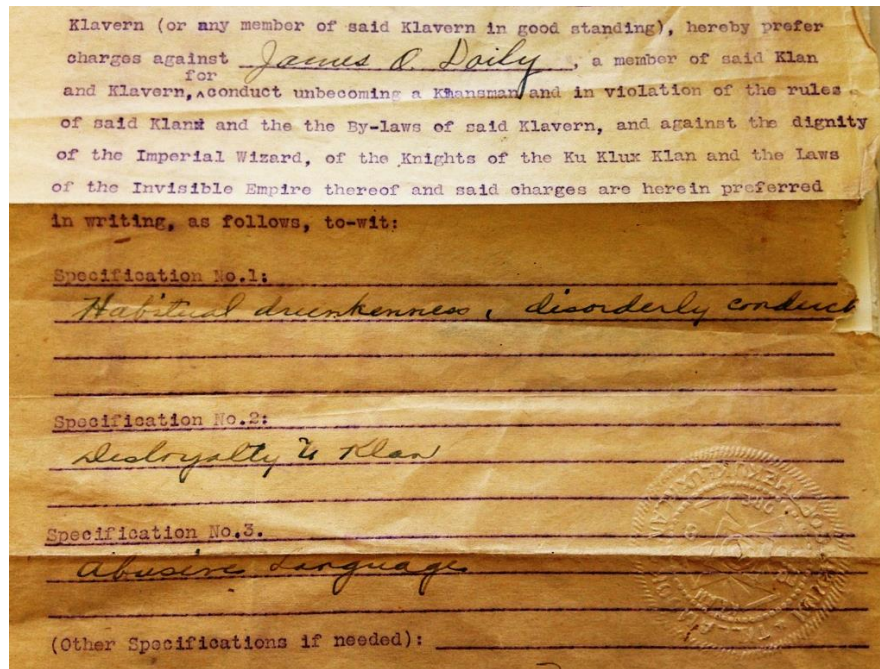 Klavern (or any member of said Klavern in good standing), hereby prefer
charges against James O. Daily, a member of said Klan
for
and Klavern, ^conduct unbecoming a Klansman and in violation of the rules
of said Klan and the the By-laws of said Klavern, and against the dignity
of the Imperial Wizard, of the Knights of the Ku Klux Klan and the Laws
of the Invisible Empire thereof and said charges are herein preferred
in writing, as follows, to-wit:
Specification No.1:
Habitual drunkenness, disorderly conduct
Specification No.2:
Disloyalty to Klan
Specification No.3.
Abusive Language
(Other Specifications if needed):